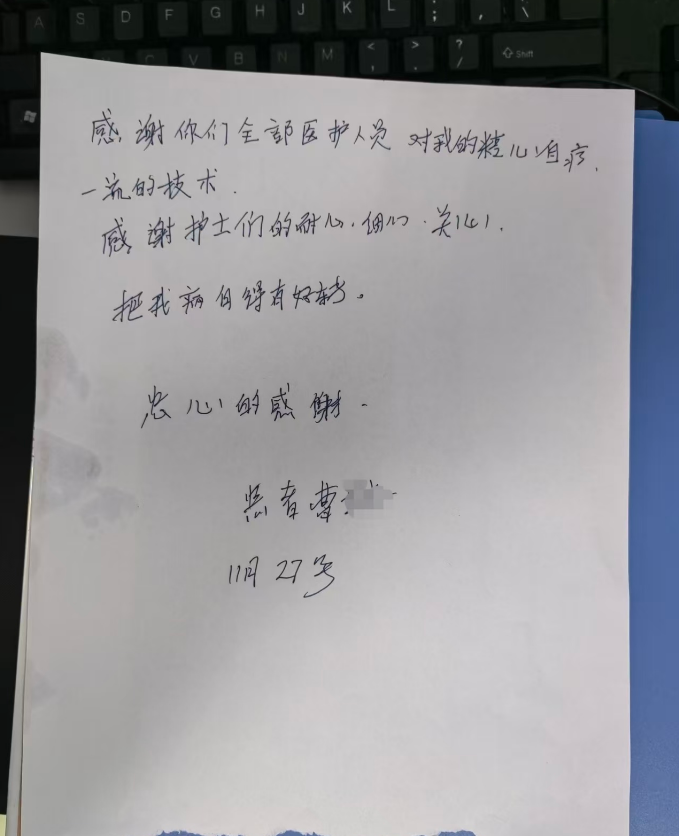 A S D F G H J K L ; '
C V B N M < , > . ? / Shift
感谢你们全部医护人员 对我的精心治疗.
一流的技术.
感谢护士们的耐心.细心.关心.
把我病自得有好转。
忠心的感谢.
患者曹
11月27号